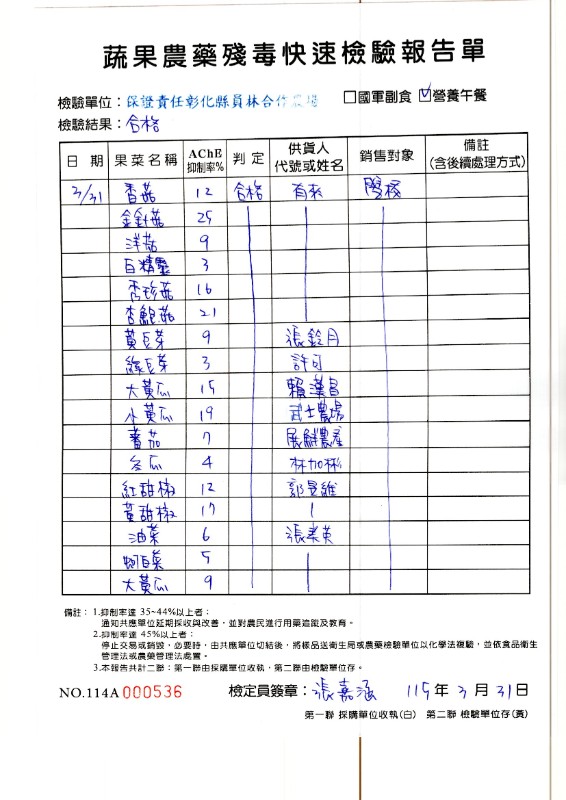 蔬果農藥殘毒快速檢驗報告單
檢驗單位：保證責任彰化縣員林合作農場 □國軍副食 ☑營養午餐
檢驗結果：合格
日期 果菜名稱 AChE抑制率% 判定 供貨人代號或姓名 銷售對象 備註(含後續處理方式)
3/31 香菇 12 合格 有來 學校
金針菇 25
洋菇 9
白精靈 3
秀珍菇 16
杏鮑菇 21
黃豆芽 9 張鈴月
綠豆芽 3 許可
大黃瓜 15 賴漢昌
小黃瓜 19 武士農場
蕃茄 7 展鮮農產
冬瓜 4 林加彬
紅甜椒 12 郭昱維
黃甜椒 17
油菜 6 張柔英
蚵白菜 5
大黃瓜 9
備註：1.抑制率達 35~44%以上者：
通知共應單位延期採收與改善，並對農民進行用藥追蹤及教育。
2.抑制率達 45%以上者：
停止交易或銷毀，必要時，由共應單位切結後，將樣品送衛生局或農藥檢驗單位以化學法複驗，並依食品衛生
管理法或農藥管理法處置。
3.本報告共計二聯：第一聯由採購單位收執，第二聯由檢驗單位存。
NO.114A 000536 檢定員簽章：張嘉涵 115年3月31日
第一聯 採購單位收執(白) 第二聯 檢驗單位存(黃)